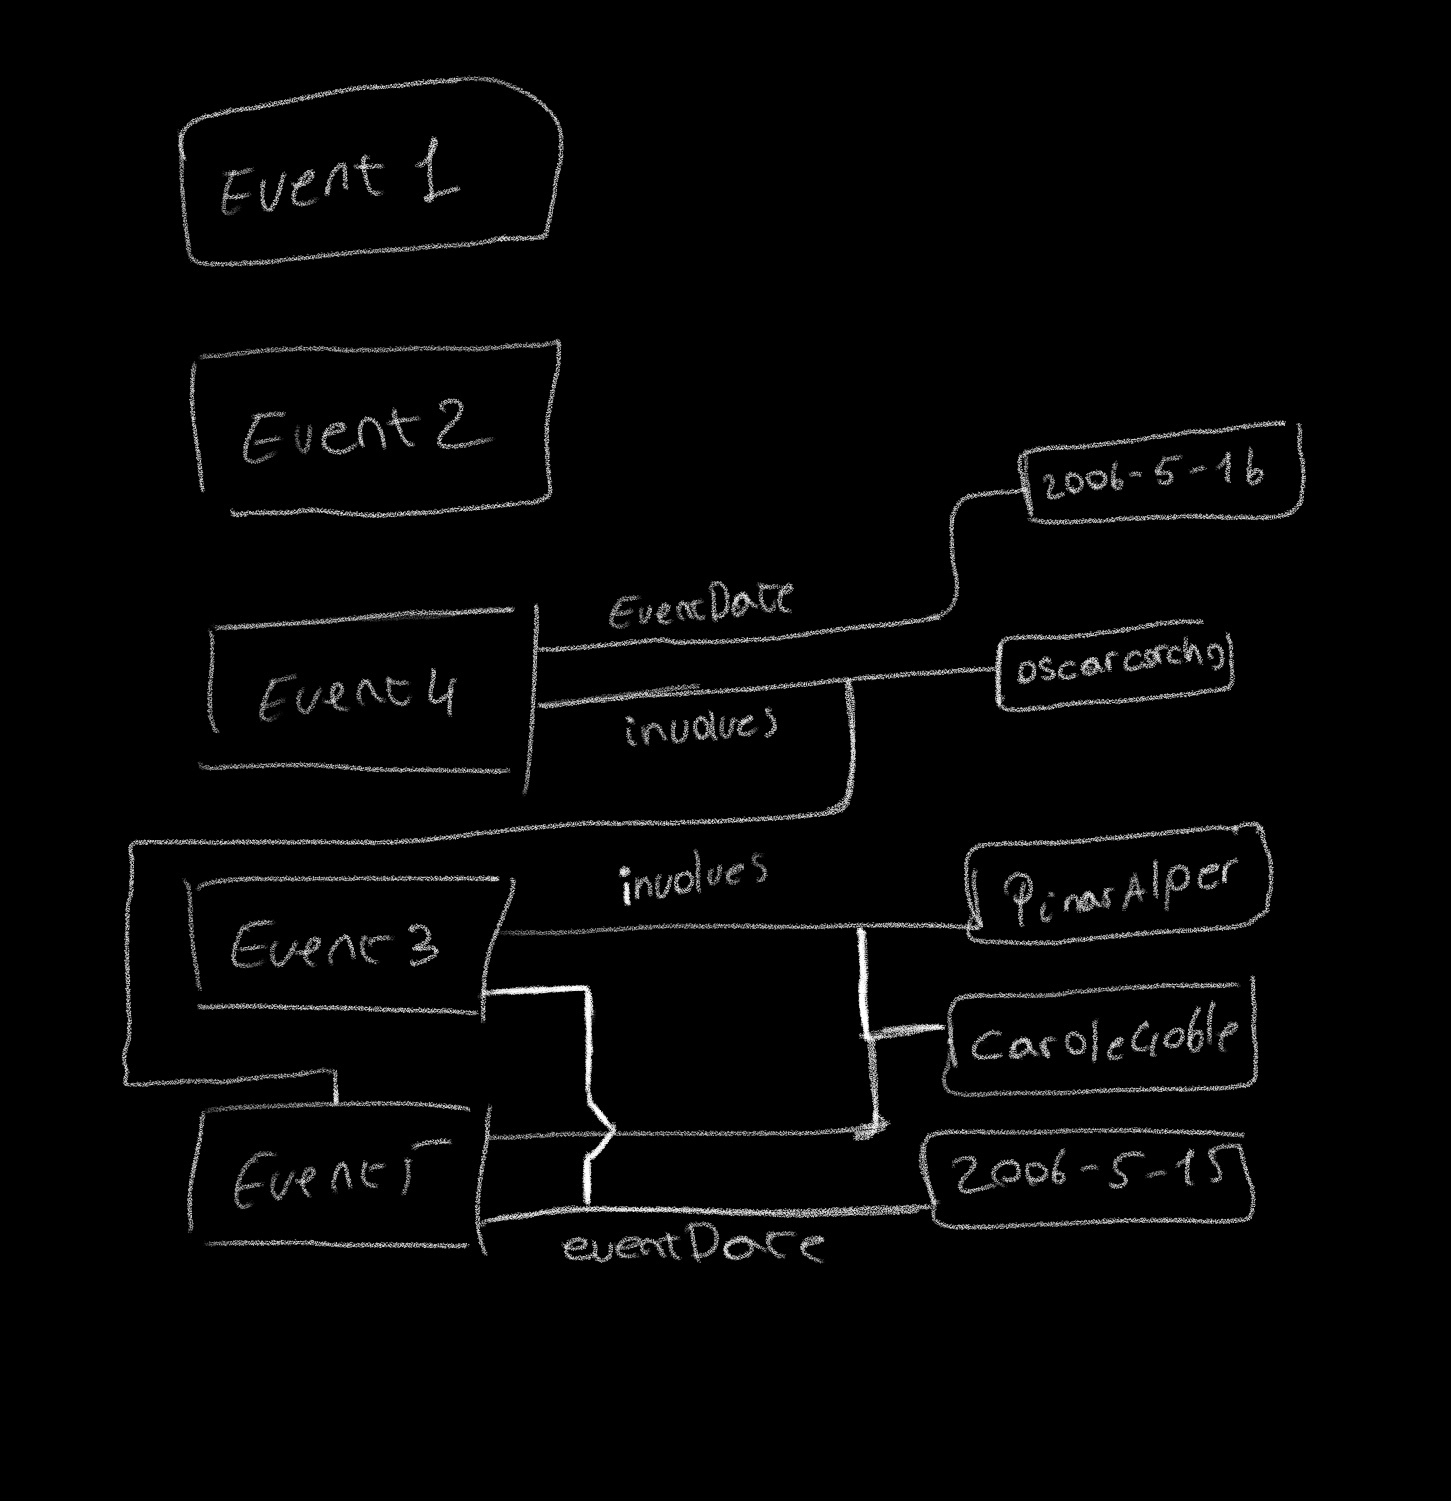 Event 1
Event 2
2006-5-16
EventDate
oscarcorcho
Event 4
involves
involves
PinarAlper
Event 3
CaroleGoble
Event 5
2006-5-15
eventDate